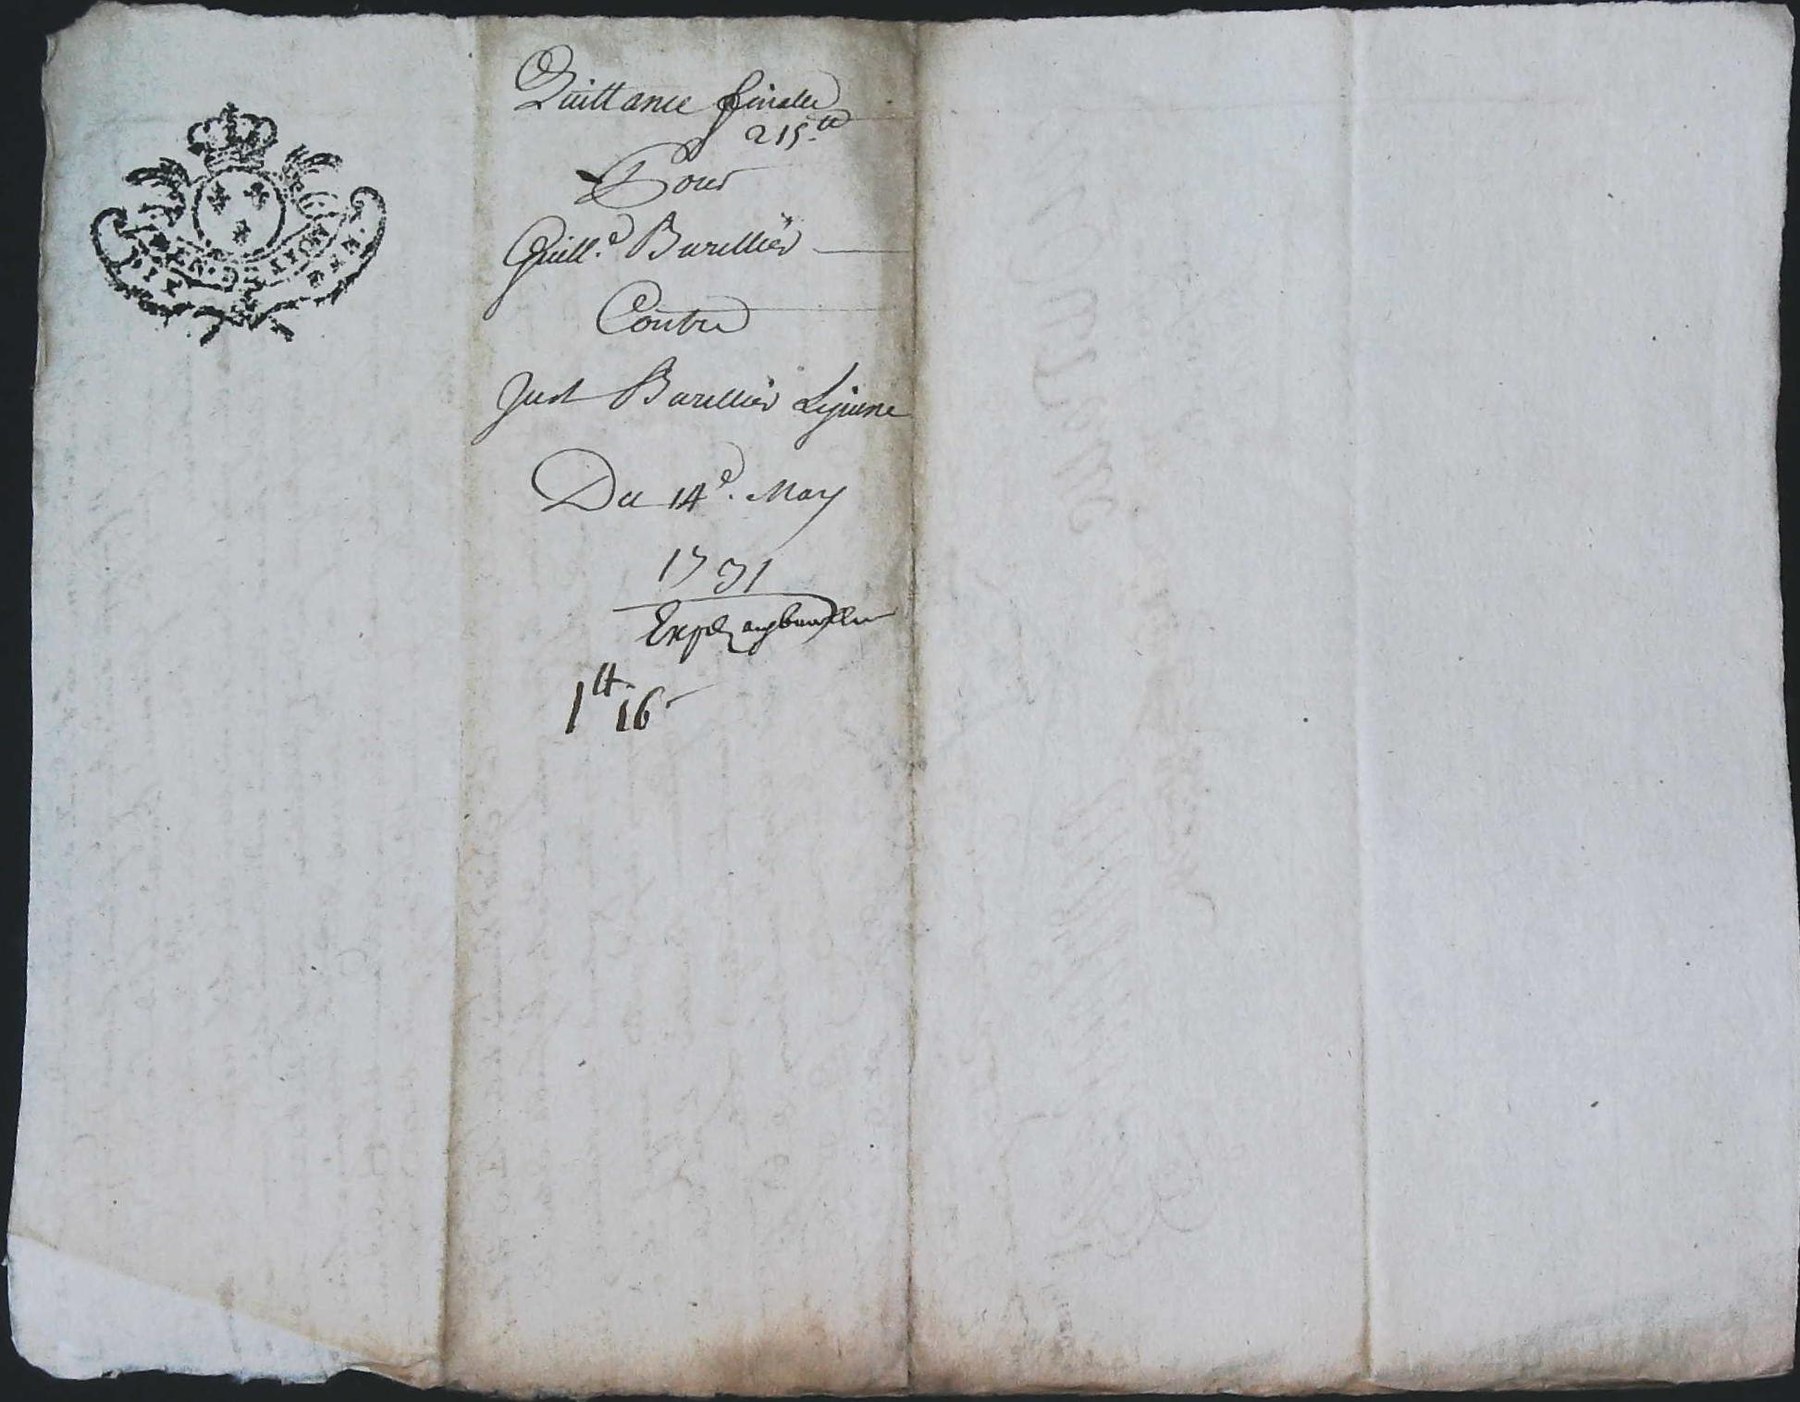 Quittance finalle
215.tt
Pour
Guill.e Barellier
Contre
Just Barellier Lejeune
Du 14e. May
1731
1tt 16